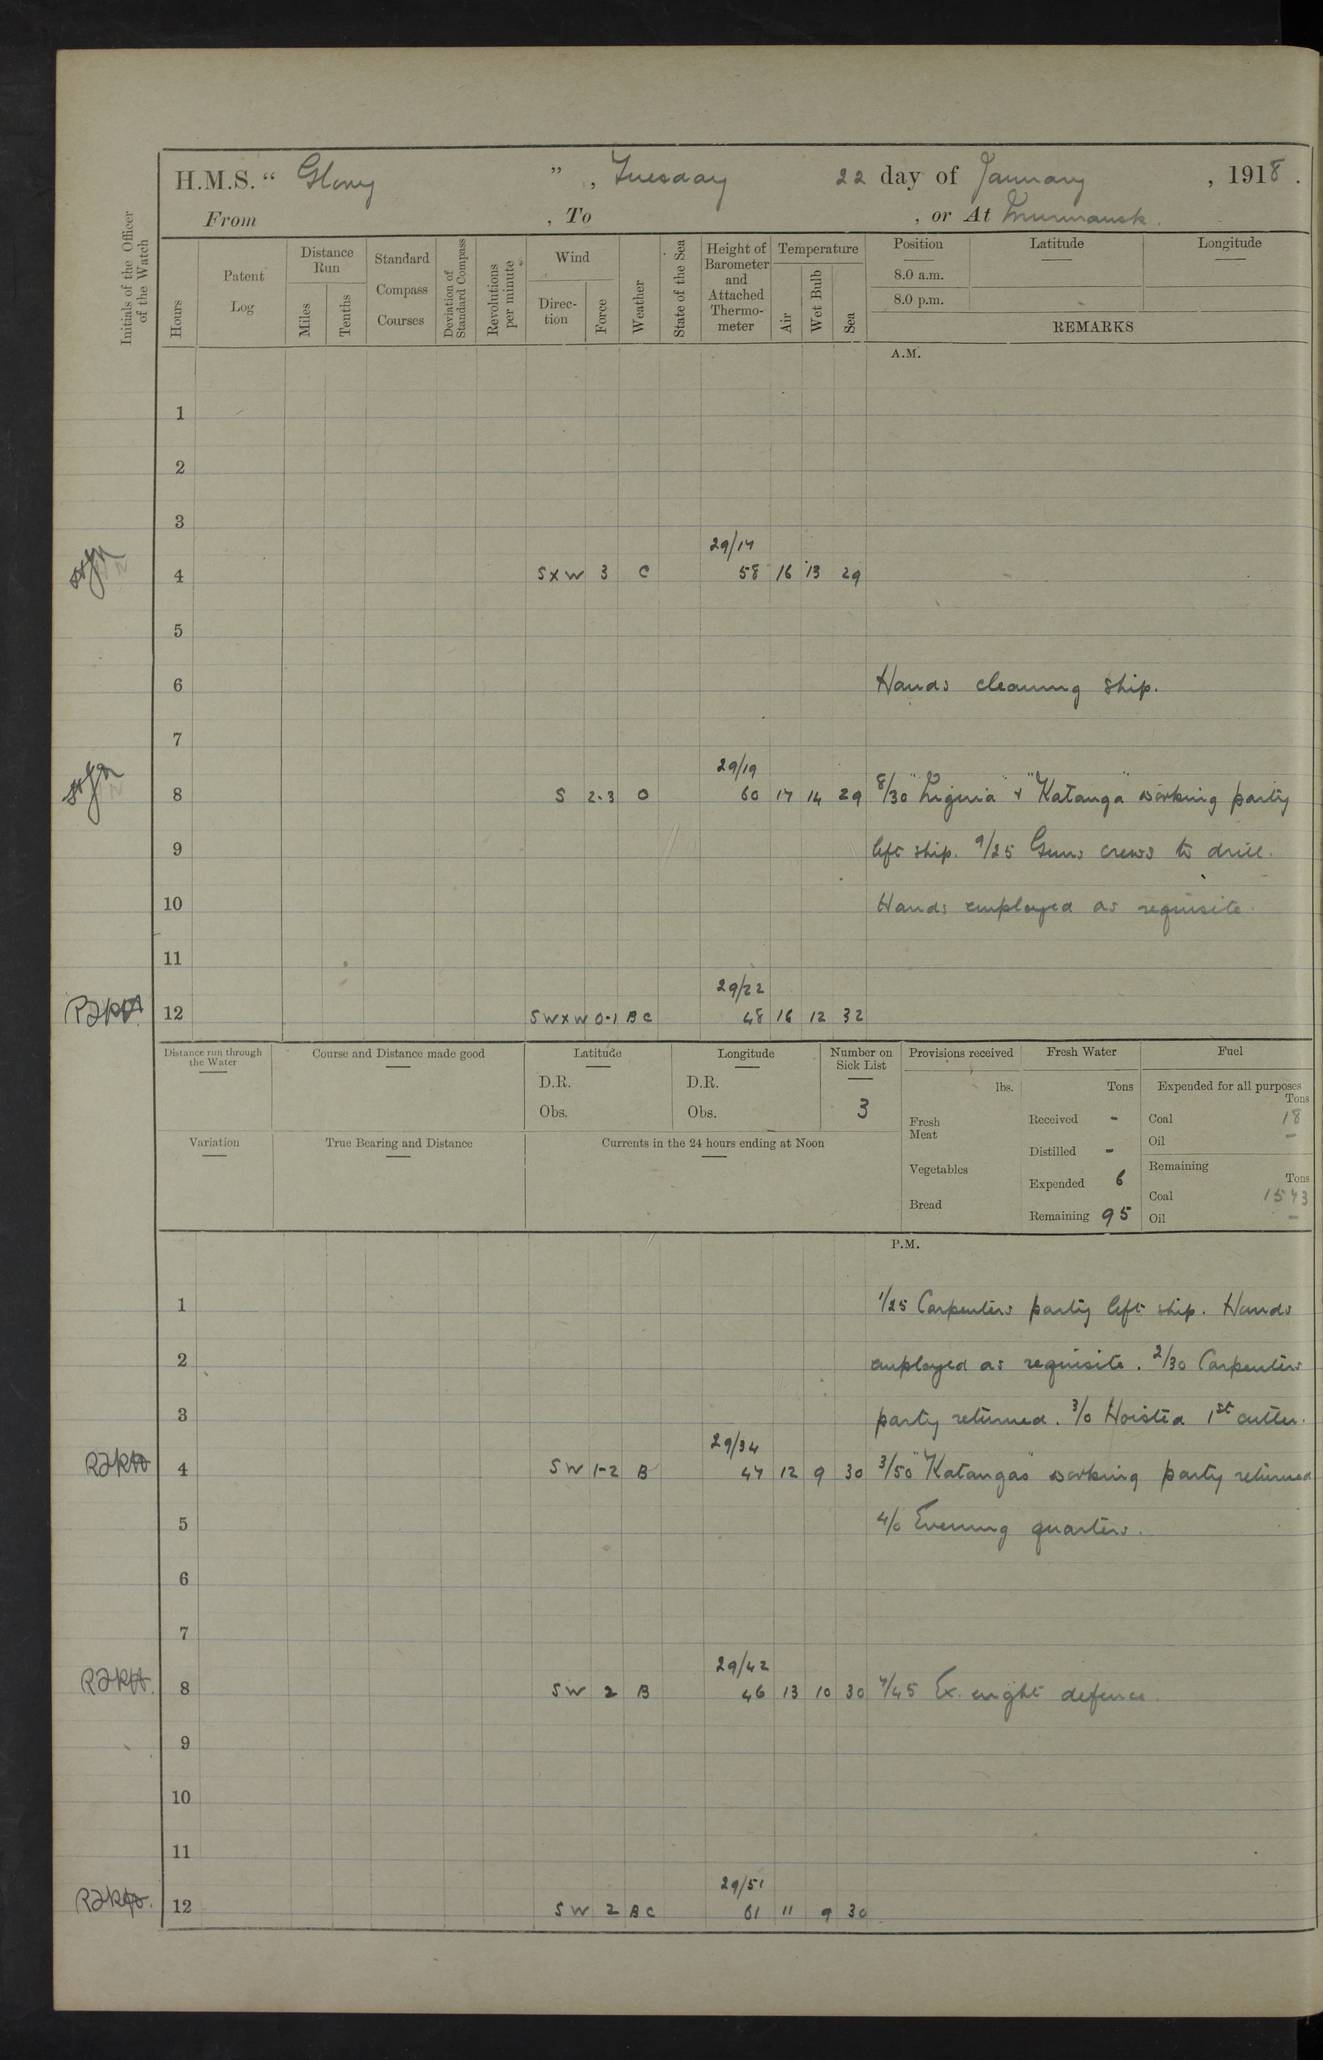 H.M.S. “ Glory ” , Tuesday 22 day of January , 1918 .
From , To , or At Murmansk.
Initials of the Officer of the Watch
Hours
Patent Log
Distance Run
Miles
Tenths
Standard Compass Courses
Deviation of Standard Compass
Revolutions per minute
Wind
Direc- tion
Force
Weather
State of the Sea
Height of Barometer and Attached Thermo- meter
Temperature
Air
Wet Bulb
Sea
Position
Latitude
Longitude
8.0 a.m.
8.0 p.m.
REMARKS
A.M.
1
2
3
29/17
4 S x W 3 C 58 16 13 29
5
6 Hands cleaning ship.
7
29/19
8 S 2-3 O 60 17 14 29 8/30 "Nigeria" & "Katanga" working party
9 left ship. 9/25 Guns crews to drill.
10 Hands employed as requisite.
11
29/22
12 SW x W 0-1 BC 48 16 12 32
Distance run through the Water
Course and Distance made good
Latitude
D.R.
Obs.
Longitude
D.R.
Obs.
Number on Sick List
3
Provisions received
lbs.
Fresh Meat
Vegetables
Bread
Fresh Water
Tons
Received -
Distilled -
Expended 6
Remaining 95
Fuel
Expended for all purposes
Tons
Coal 18
Oil -
Remaining
Tons
Coal 1573
Oil -
Variation
True Bearing and Distance
Currents in the 24 hours ending at Noon
P.M.
1 1/25 Carpenters party left ship. Hands
2 employed as requisite. 2/30 Carpenters
3 party returned. 3/0 Hoisted 1st cutter.
29/34
4 SW 1-2 B 47 12 9 30 3/50 "Katangas" working party returned
5 4/0 Evening quarters.
6
7
29/42
8 SW 2 B 46 13 10 30 7/45 Ex. night defence.
9
10
11
29/51
12 SW 2 BC 61 11 9 30